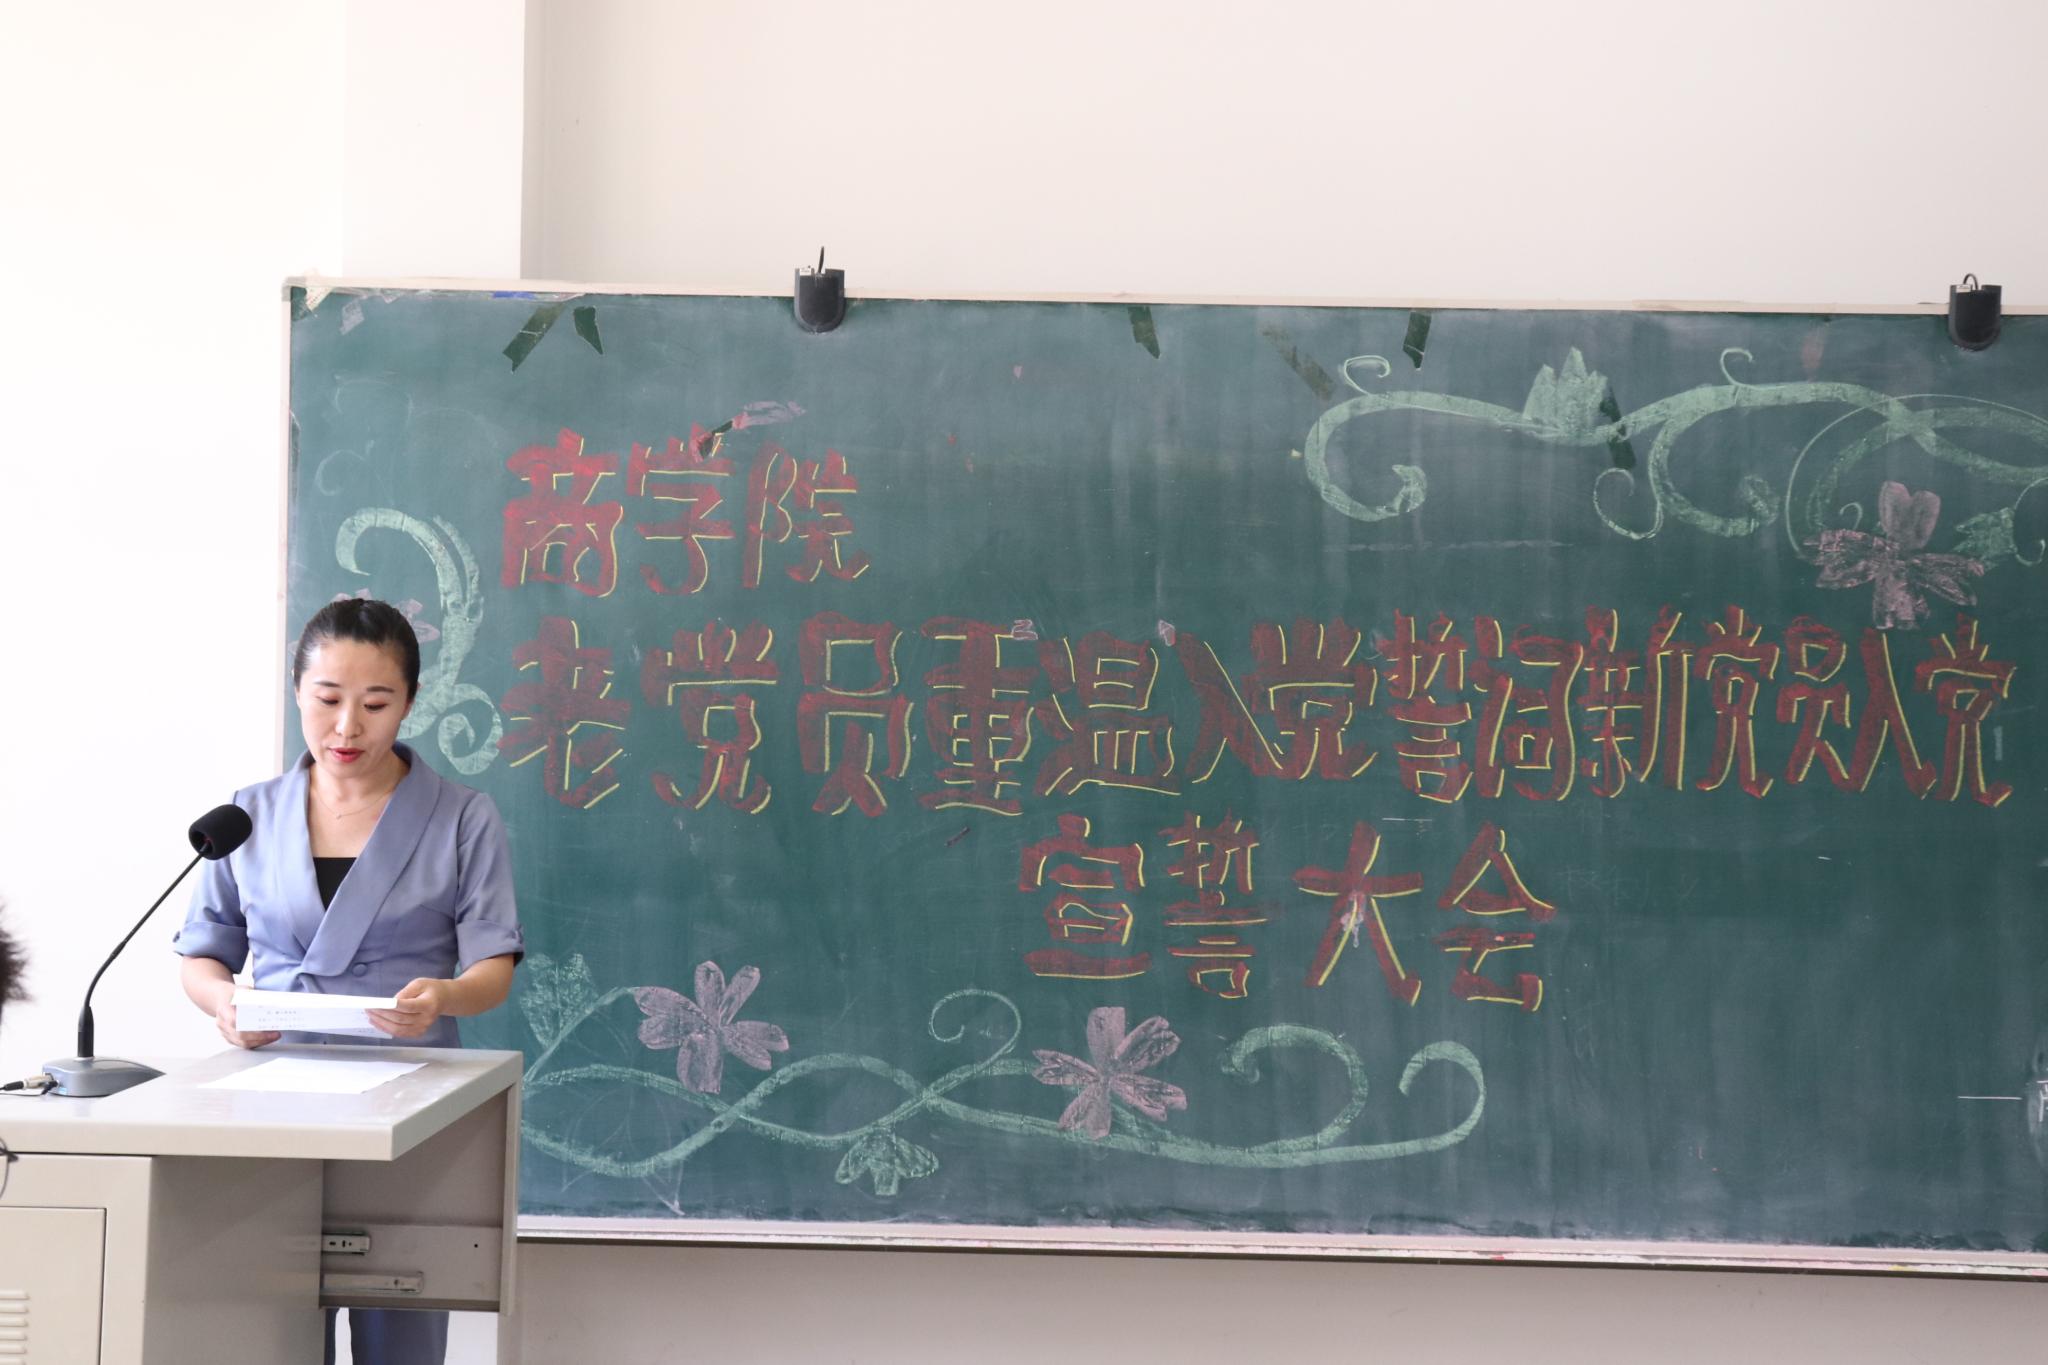 商学院
老党员重温入党誓词新党员入党
宣誓大会